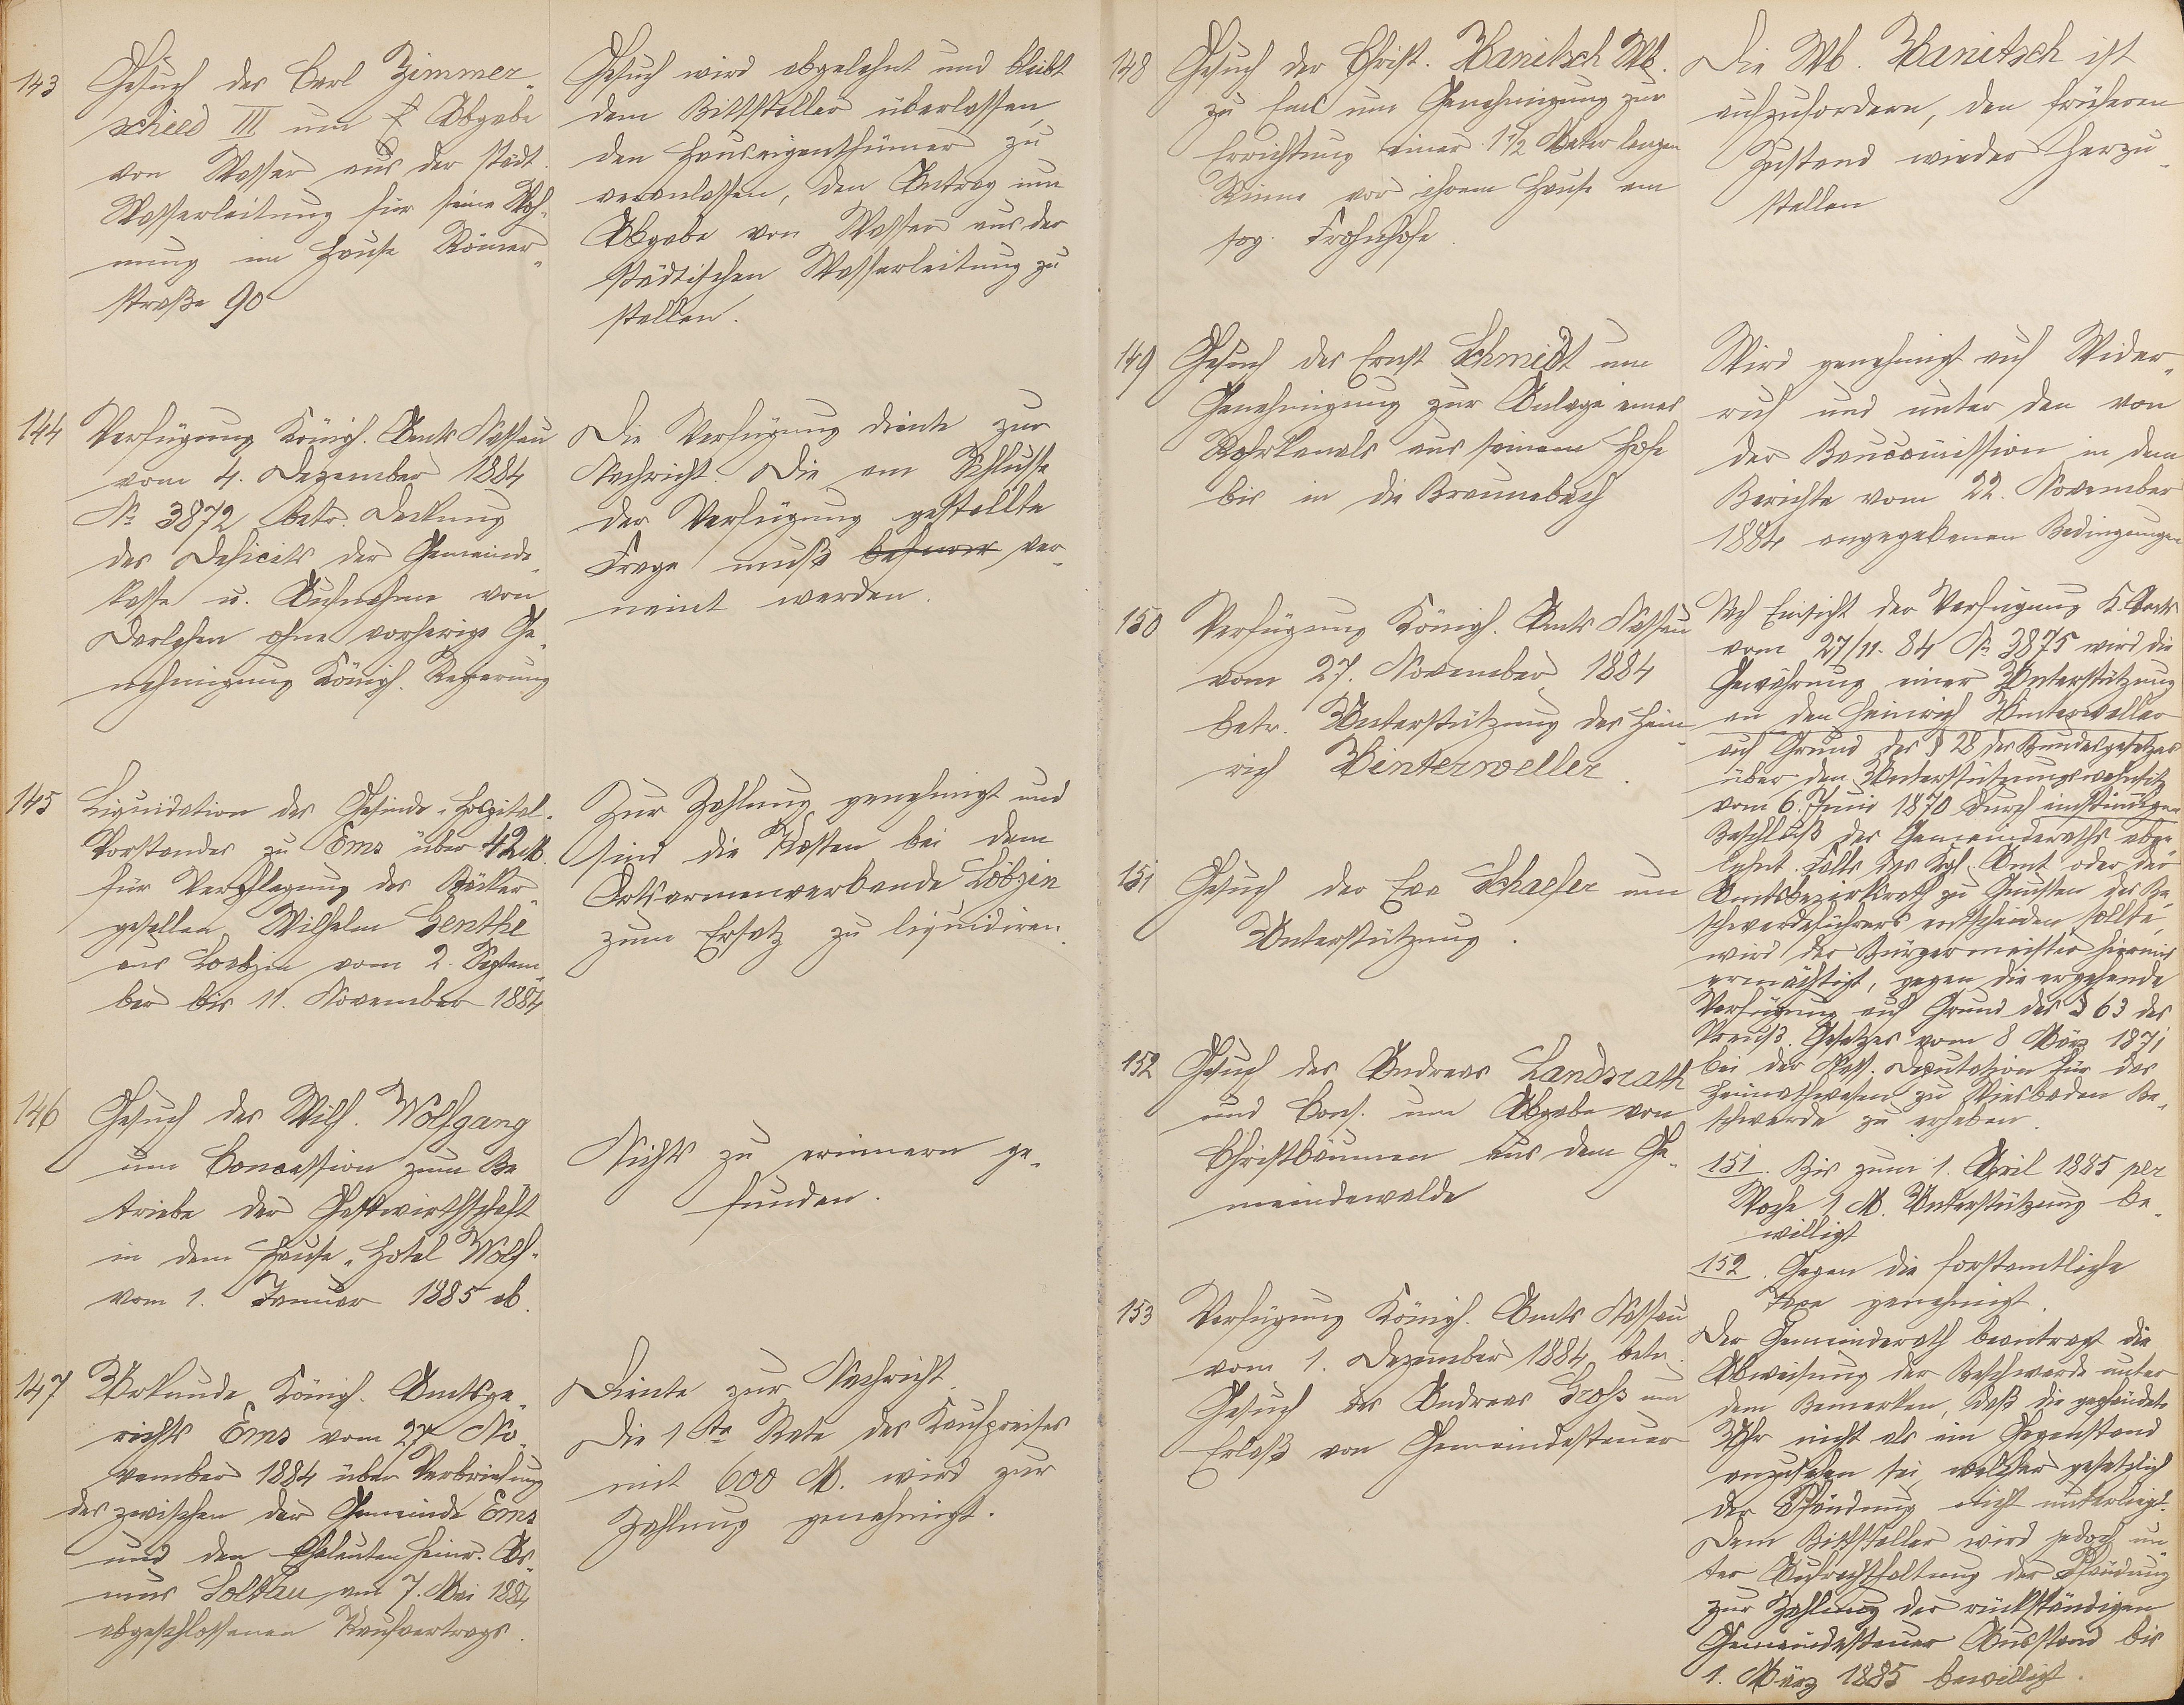 143
Gesuch des Carl Zimmer-
schied III um Abgabe
von Wasser aus der städt.
Wasserleitung für seine Woh-
nung im Hause Römer-
straße 90
Gesuch wird abgelehnt und bleibt
dem Bittsteller überlassen
den Hauseigenthümer zu
veranlassen, den Antrag um
Abgabe von Wasser aus der
städtischen Wasserleitung zu
stellen.
144
Verfügung Königl. Amts Nassau
vom 4. Dezember 1884
No 3872 betr. Deckung
des Deficits der Gemeinde-
kasse u. Aufnahme von
Darlehen ohne vorherige Ge-
nehmigung Königl. Regierung
Die Verfügung diente zur
Nachricht. Die am Schlusse
der Verfügung gestellte
Frage muß ver-
neint werden.
145
Liquidation des Gesinde-Hospital-
Vorstandes zu Ems über 42 M.
für Verpflegung des Bäcker-
gesellen Wilhelm Genthe
aus Loebzin vom 2. Septem-
ber bis 11. November 1884
Zur Zahlung genehmigt und
sind die Kosten bei dem
Ortsarmenverbande Löbzin
zum Ersatz zu liquidiren.
146
Gesuch des Wilh. Wolfgang
um Concession zum Be-
triebe der Gastwirthschaft
in dem Hause "Hotel Wolf"
vom 1. Januar 1885 ab.
Nichts zu erinnern ge-
funden.
147
Urkunde Königl. Amtsge-
richts Ems vom 27 No-
vember 1884 über Verbriefung
des zwischen der Gemeinde Ems
und den Eheleuten Heinr. As-
mus Solthau am 7. Mai 1884
abgeschlossenen Kaufvertrags.
Diente zur Nachricht.
Die 1ste Rate des Kaufpreises
mit 600 M. wird zur
Zahlung genehmigt.
148
Gesuch der Christ. Wanitsch Wb.
zu Ems um Genehmigung zur
Errichtung einer 1 1/2 Meter langen
Rinne vor ihrem Hause am
sog. Frohnhofe.
Die Wb. Wanitsch ist
aufzufordern, den früheren
Zustand wieder herzu-
stellen
149
Gesuch des Ernst Schmidt um
Genehmigung zur Anlage eines
Rohrkanals aus seinem Hofe
bis in die Braunebach
Wird genehmigt auf Wider-
ruf und unter den von
der Baucommission in dem
Berichte vom 22. November
1884 angegebenen Bedingungen
150
Verfügung Königl. Amts Nassau
vom 27. November 1884
betr. Unterstützung des Hein-
rich Winterweller.
Nach Einsicht der Verfügung K. Amts
vom 27/11. 84 No 3875 wird die
Gewährung einer Unterstützung
an den Heinrich Winterweller
auf Grund des § 28 des Bundesgesetzes
über den Unterstützungswohnsitz
vom 6. Juni 1870 durch einstimmigen
Beschluß des Gemeinderaths abge-
lehnt. Falls das Kgl. Amt oder der
Amtsbezirksrath zu Gunsten des Be-
schwerdeführers entscheiden sollte,
wird der Bürgermeister hiermit
ermächtigt, gegen die ergehende
Verfügung auf Grund des § 63 des
Preuß. Gesetzes vom 8 März 1871
bei der Deputation für das
Heimathwesen zu Wiesbaden Be-
schwerde zu erheben.
151
Gesuch der Eva Schaefer um
Unterstützung.
151. Bis zum 1. April 1885 per
Woche 1 M. Unterstützung be-
willigt
152
Gesuch des Andreas Landsrath
und Cons. um Abgabe von
Christbäumen aus dem Ge-
meindewalde
152. Gegen die forstamtliche
Taxe genehmigt.
153
Verfügung Königl. Amts Nassau
vom 1. Dezember 1884 betr.
Gesuch des Andreas Groß um
Erlaß von Gemeindesteuer
Der Gemeinderath beantragt die
Abweisung der Beschwerde unter
dem Bemerken, daß die gepfändete
Uhr nicht als ein Gegenstand
anzusehen sei, welcher gesetzlich
der Pfändung nicht unterliegt.
Dem Bittsteller wird jedoch un-
ter Aufrechthaltung der Pfändung
zur Zahlung der rückständigen
Gemeindesteuer Ausstand bis
1. März 1885 bewilligt.